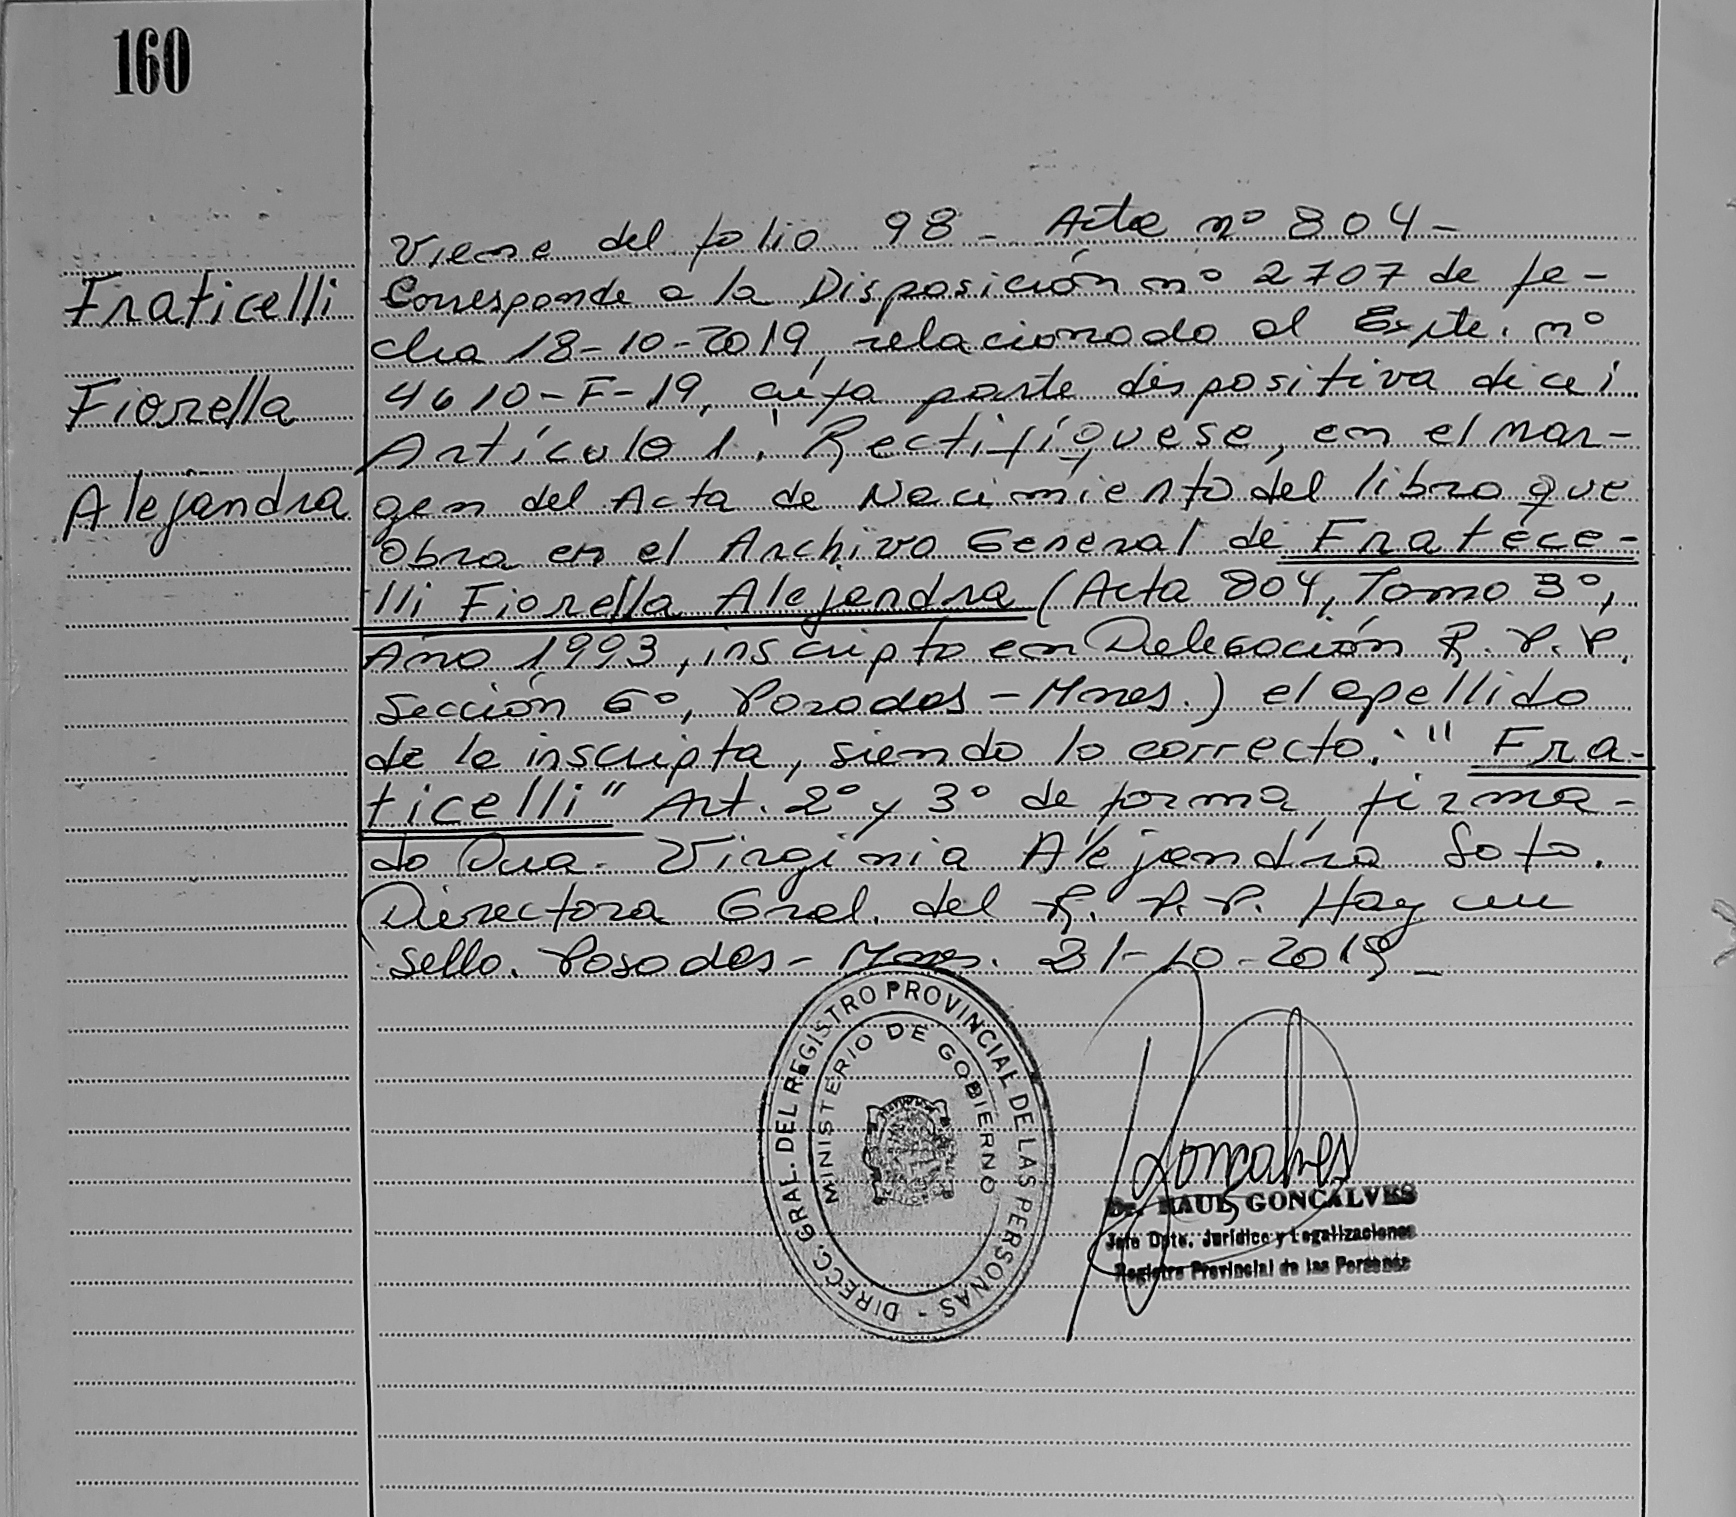 160
Fraticelli
Fiorella
Alejandra
Viene del folio 98 - Acta nº 804 -
Corresponde a la Disposición nº 2707 de fe-
cha 18-10-2019, relacionado al Expte. nº
4610-F-19, cuya parte dispositiva dice:
Artículo 1: Rectifíquese, en el mar-
gen del Acta de Nacimiento del libro que
Obra en el Archivo General de Fratece-
lli Fiorella Alejandra (Acta 804, Tomo 3º,
Año 1993, inscripto en Delegación R. P. P.
Sección 6º, Posadas - Mnes.) el apellido
de la inscripta, siendo lo correcto: "Fra-
ticelli" Art. 2º y 3º de forma, firma-
do Dra. Virginia Alejandra Soto.
Directora Gral. del R. P. P. Hay un
sello. Posadas - Mnes. 31-10-2019 -
DIRECC. GRAL. DEL REGISTRO PROVINCIAL DE LAS PERSONAS -
MINISTERIO DE GOBIERNO
Goncalves
Dr. RAUL GONCALVES
Jefe Dpto. Jurídico y Legalizaciones
Registro Provincial de las Personas